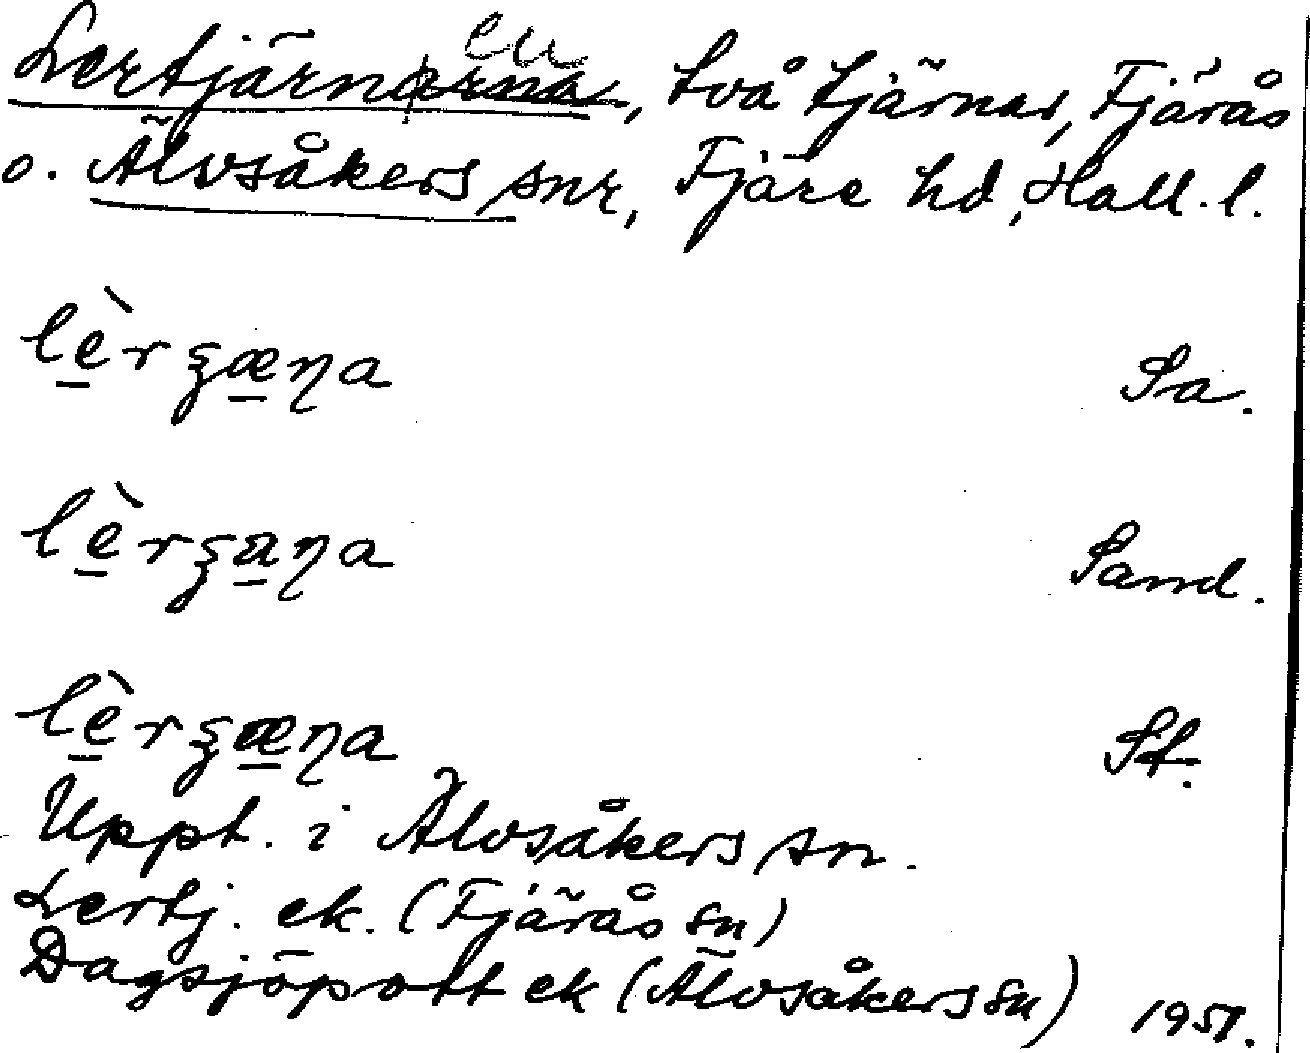 Lertjärnarna, två tjärnar, Fjärås
en
o. Älvsåkers snr, Fjäre hd, Hall. l.
lè̠rʒæ̠ɳa Sa.
lè̠rʒa̠ɳa Sand.
lè̠rʒæ̠ɳa St.
Uppt. i Älvsåkers sn.
Lertj. ek. (Fjärås sn)
Dagsjöpott ek (Älvsåkers sn) 1951.